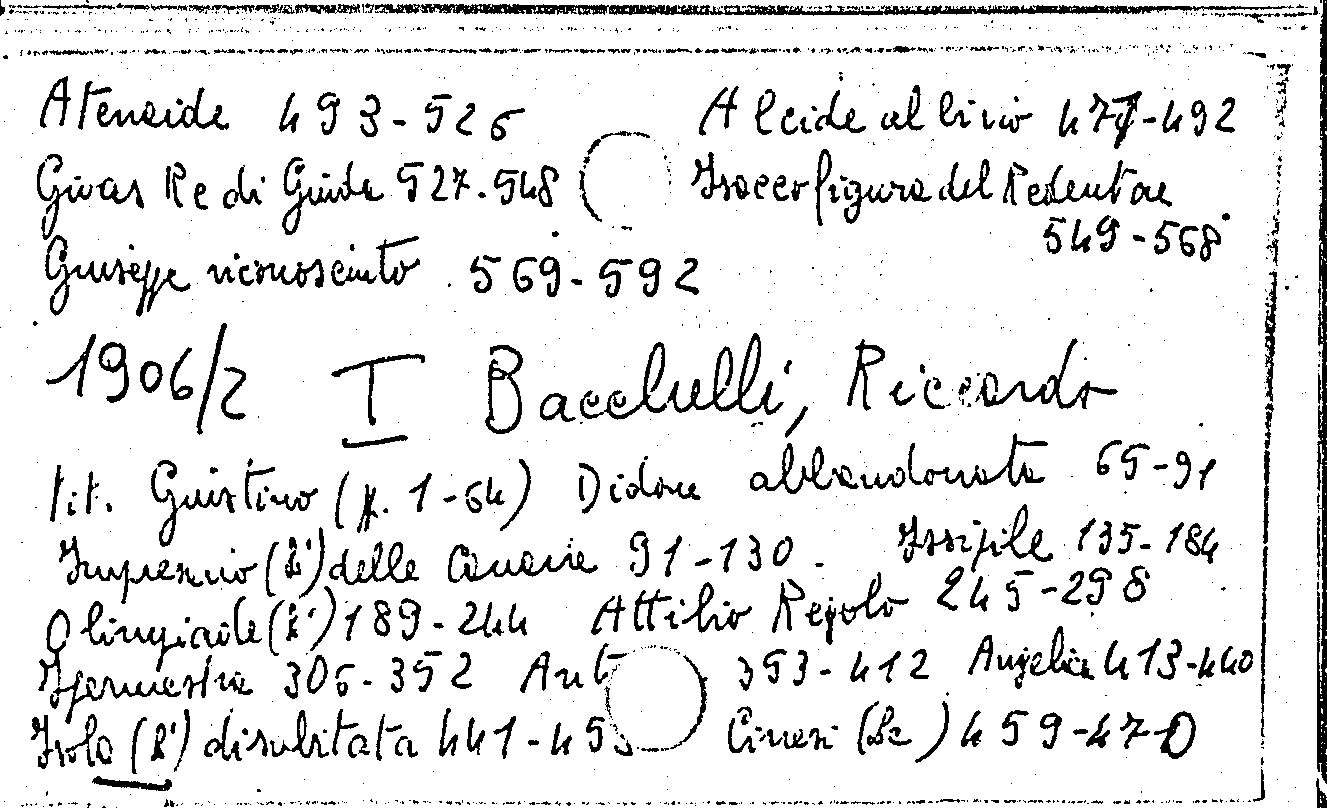 Atenaide 493-526 Alcide al bivio 471-492
Gioas Re di Giuda 527-548 Isacco figura del Redentore
549-568
Giuseppe riconosciuto 569-592
1906/2 I Bacchelli, Riccardo
tit. Giustino (p. 1-64) Didone abbandonata 65-91
Impresario (L') delle Canarie 91-130. Issipile 135-184
Olimpiade (L') 189-244 Attilio Regolo 245-298
Ipermestra 305-352 Ant 353-412 Angelica 413-440
Isola (L') disabitata 441-45 Cinesi (Le) 459-470